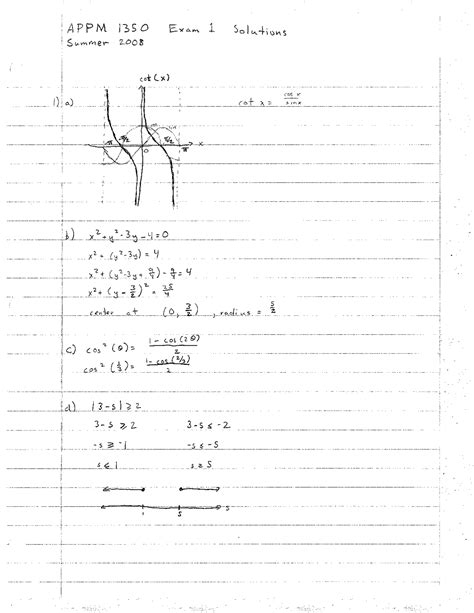 APPM 1350 Exam 1 Solutions
Summer 2008
cot(x)
1) a) cot x = cos x / sin x
-π -π/2 π/2 x
0 π
b) x² + y² - 3y - 4 = 0
x² + (y² - 3y) = 4
x² + (y² - 3y + 9/4) - 9/4 = 4
x² + (y - 3/2)² = 25/4
center at (0, 3/2), radius = 5/2
c) cos²(θ) = 1 - cos(2θ) / 2
cos²(1/3) = 1 - cos(2/3) / 2
d) |3-s| ≥ 2
3-s ≥ 2 3-s ≤ -2
-s ≥ -1 -s ≤ -5
s ≤ 1 s ≥ 5
1 5 s